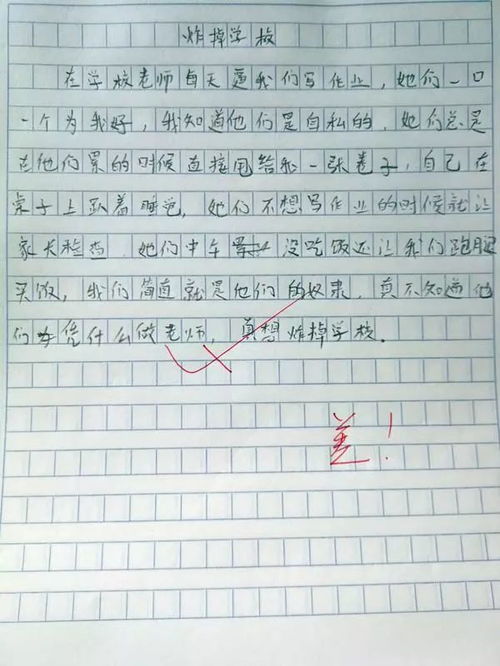 炸掉学校
在学校老师每天逼我们写作业，她们一口
一个为我好，我知道他们是自私的，她们总是
在他们累的时候直接甩给我一张卷子，自己在
桌子上趴着睡觉，她们不想写作业的时候就让
家长检查，她们中午 没吃饭还让我们跑腿
买饭，我们简直就是他们的奴隶，真不知道他
们 凭什么做老师，真想炸掉学校。
差！